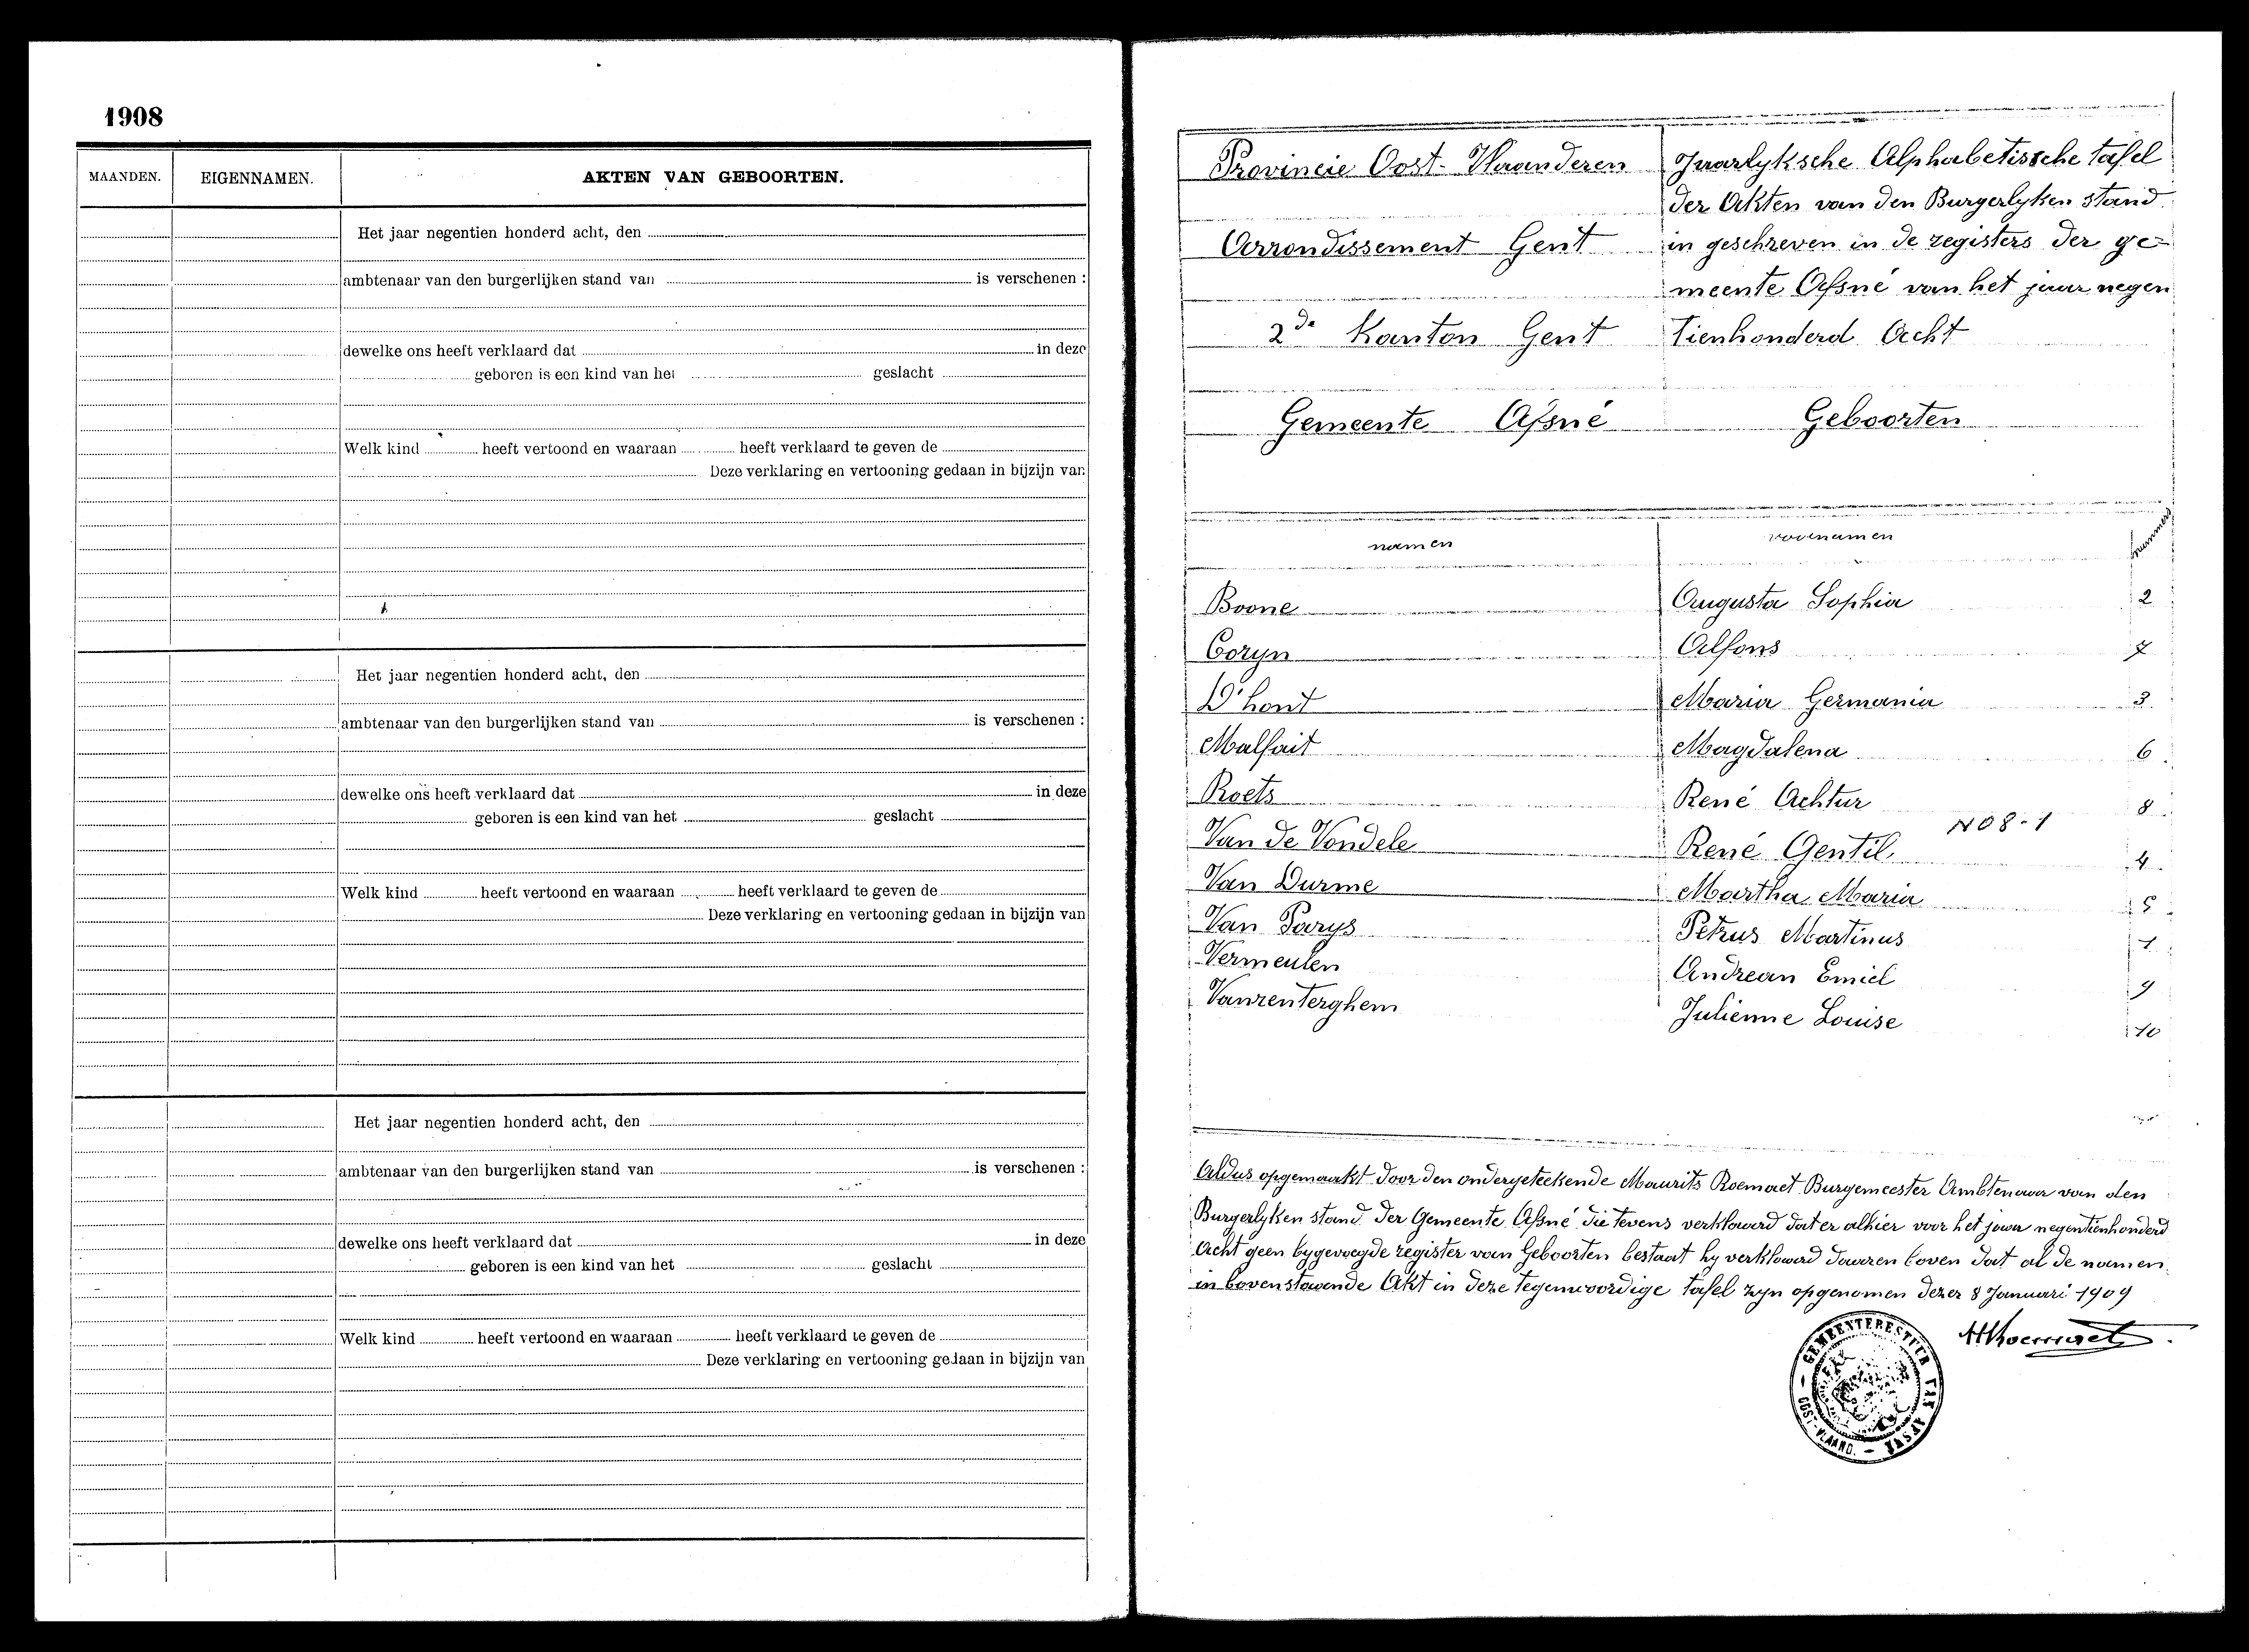 1908
MAANDEN. EIGENNAMEN. AKTEN VAN GEBOORTEN.
Het jaar negentien honderd acht, den
ambtenaar van den burgerlijken stand van is verschenen :
dewelke ons heeft verklaard dat in deze
geboren is een kind van het geslacht
Welk kind heeft vertoond en waaraan heeft verklaard te geven de
Deze verklaring en vertooning gedaan in bijzijn van
Het jaar negentien honderd acht, den
ambtenaar van den burgerlijken stand van is verschenen :
dewelke ons heeft verklaard dat in deze
geboren is een kind van het geslacht
Welk kind heeft vertoond en waaraan heeft verklaard te geven de
Deze verklaring en vertooning gedaan in bijzijn van
Het jaar negentien honderd acht, den
ambtenaar van den burgerlijken stand van is verschenen :
dewelke ons heeft verklaard dat in deze
geboren is een kind van het geslacht
Welk kind heeft vertoond en waaraan heeft verklaard te geven de
Deze verklaring en vertooning gedaan in bijzijn van
Provincie Oost-Vlaanderen
Arrondissement Gent
2de Kanton Gent
Gemeente Afsné
Jaarlyksche Alphabetissche tafel
der Akten van den Burgerlyken stand
in geschreven in de registers der ge-
meente Afsné van het jaar negen
tienhonderd Acht
Geboorten
namen voornamen nummers
Boone Augusta Sophia 2
Coryn Alfons 7
D'hont Maria Germania 3
Malfait Magdalena 6
Roets René Achtur 8
N08-1
Van de Vondele René Gentil 4
Van Durme Martha Maria 5
Van Parys Petrus Martinus 1
Vermeulen Andrean Emiel 9
Vanrenterghem Julienne Louise 10
Aldus opgemaakt door den ondergeteekende Maurits Roemaet Burgemeester Ambtenaar van den
Burgerlyken stand der Gemeente Afsné die tevens verklaard dat er alhier voor het jaar negentienhonderd
Acht geen bygevoegde register van Geboorten bestaat hy verklaard daaren boven dat al de namen
in bovenstaande Akt in deze tegenwoordige tafel zyn opgenomen dezer 8 Januari 1909
MRoemaet
GEMEENTEBESTUUR VAN AFSNÉ
OOST-VLAAND.